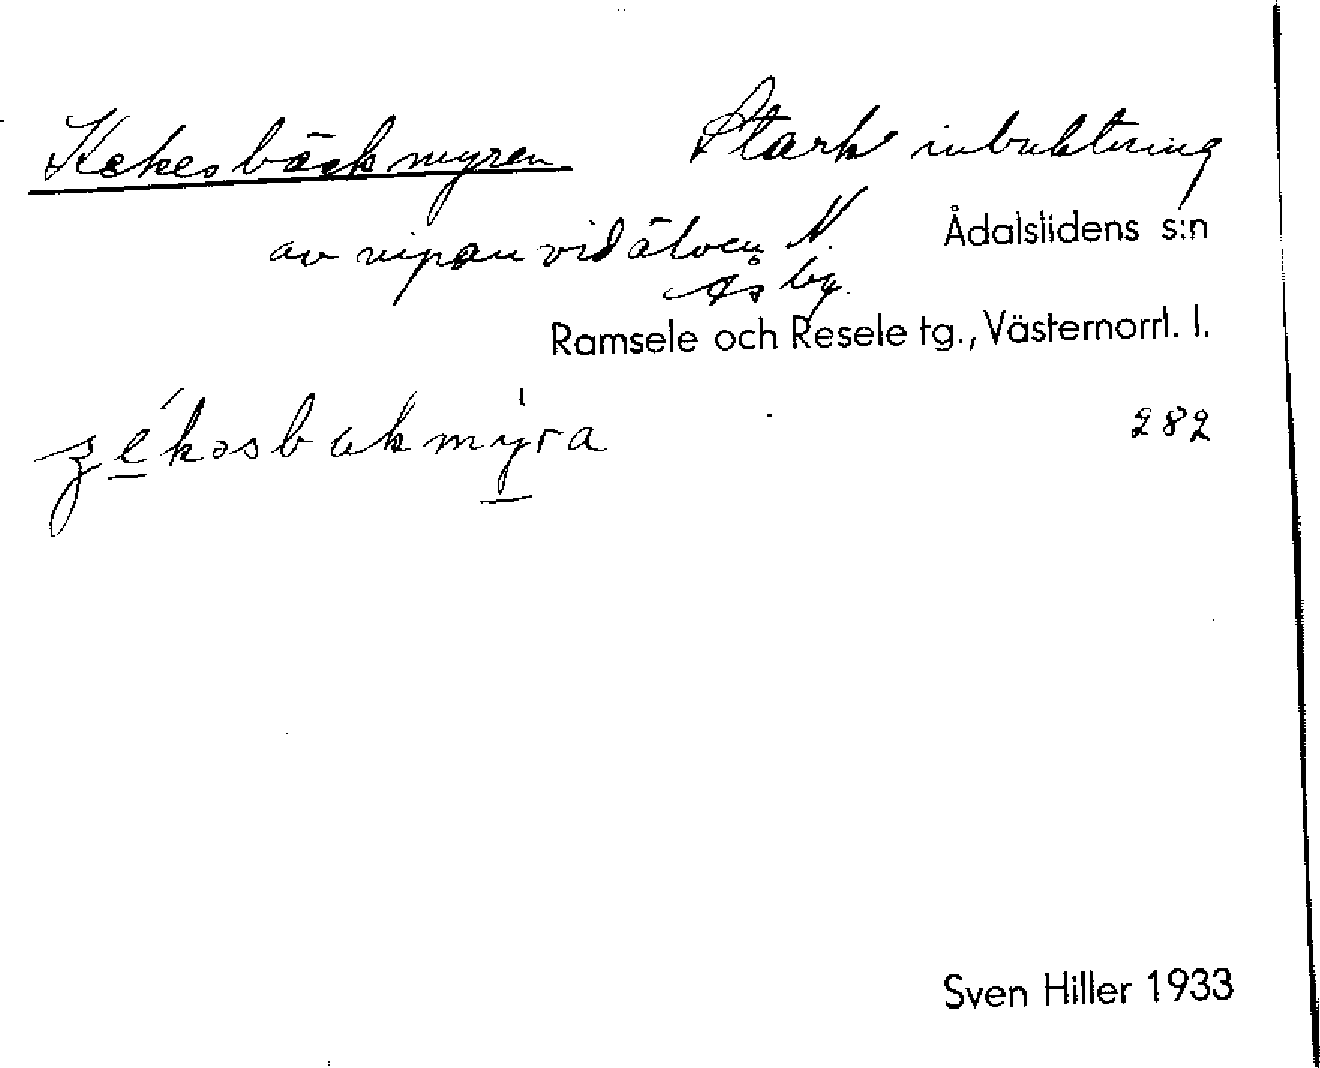 Kekesbäckmyren Stark inbuktning
av nipan vid älven N. Ådalslidens s:n
Ås by.
Ramsele och Resele tg., Västernorrl. l.
282
Sven Hiller 1933